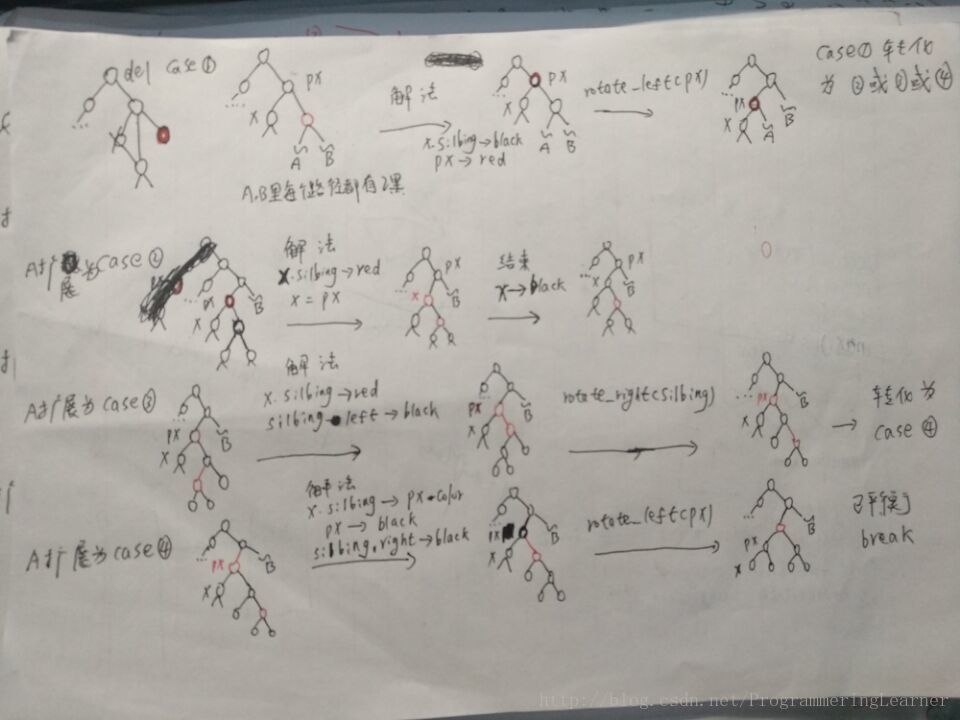 del case①
px
x
A
B
A,B里每个路径都有2黑
解法
x.silbing→black
px→red
px
x
A
B
rotate_left(px)
px
x
A
B
case①转化
为②或③或④
A扩展为case②
px
x
B
解法
x.silbing→red
x=px
px
x
B
结束
x→black
px
x
B
A扩展为case③
px
x
B
解法
x.silbing→red
silbing left→black
px
x
B
rotate_right(silbing)
px
x
B
转化为
case④
A扩展为case④
px
x
B
解法
x.silbing→px.color
px→black
silbing.right→black
px
x
B
rotate_left(px)
px
x
B
已平衡了
break
http://blog.csdn.net/ProgrammeringLearner